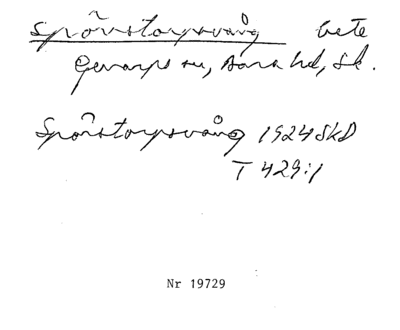 Spörstorpsvång bete
Genarps sn, Bara hd, Sk.
Spörstorpsvång 1924 SkD
T 429:1
Nr 19729